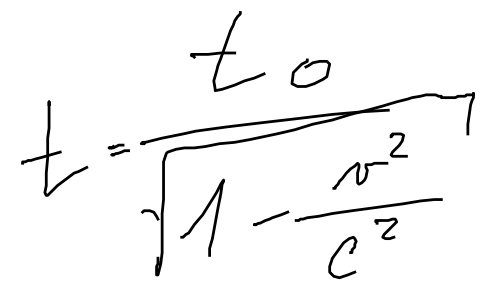 t = t₀ / √(1 − v² / c²)